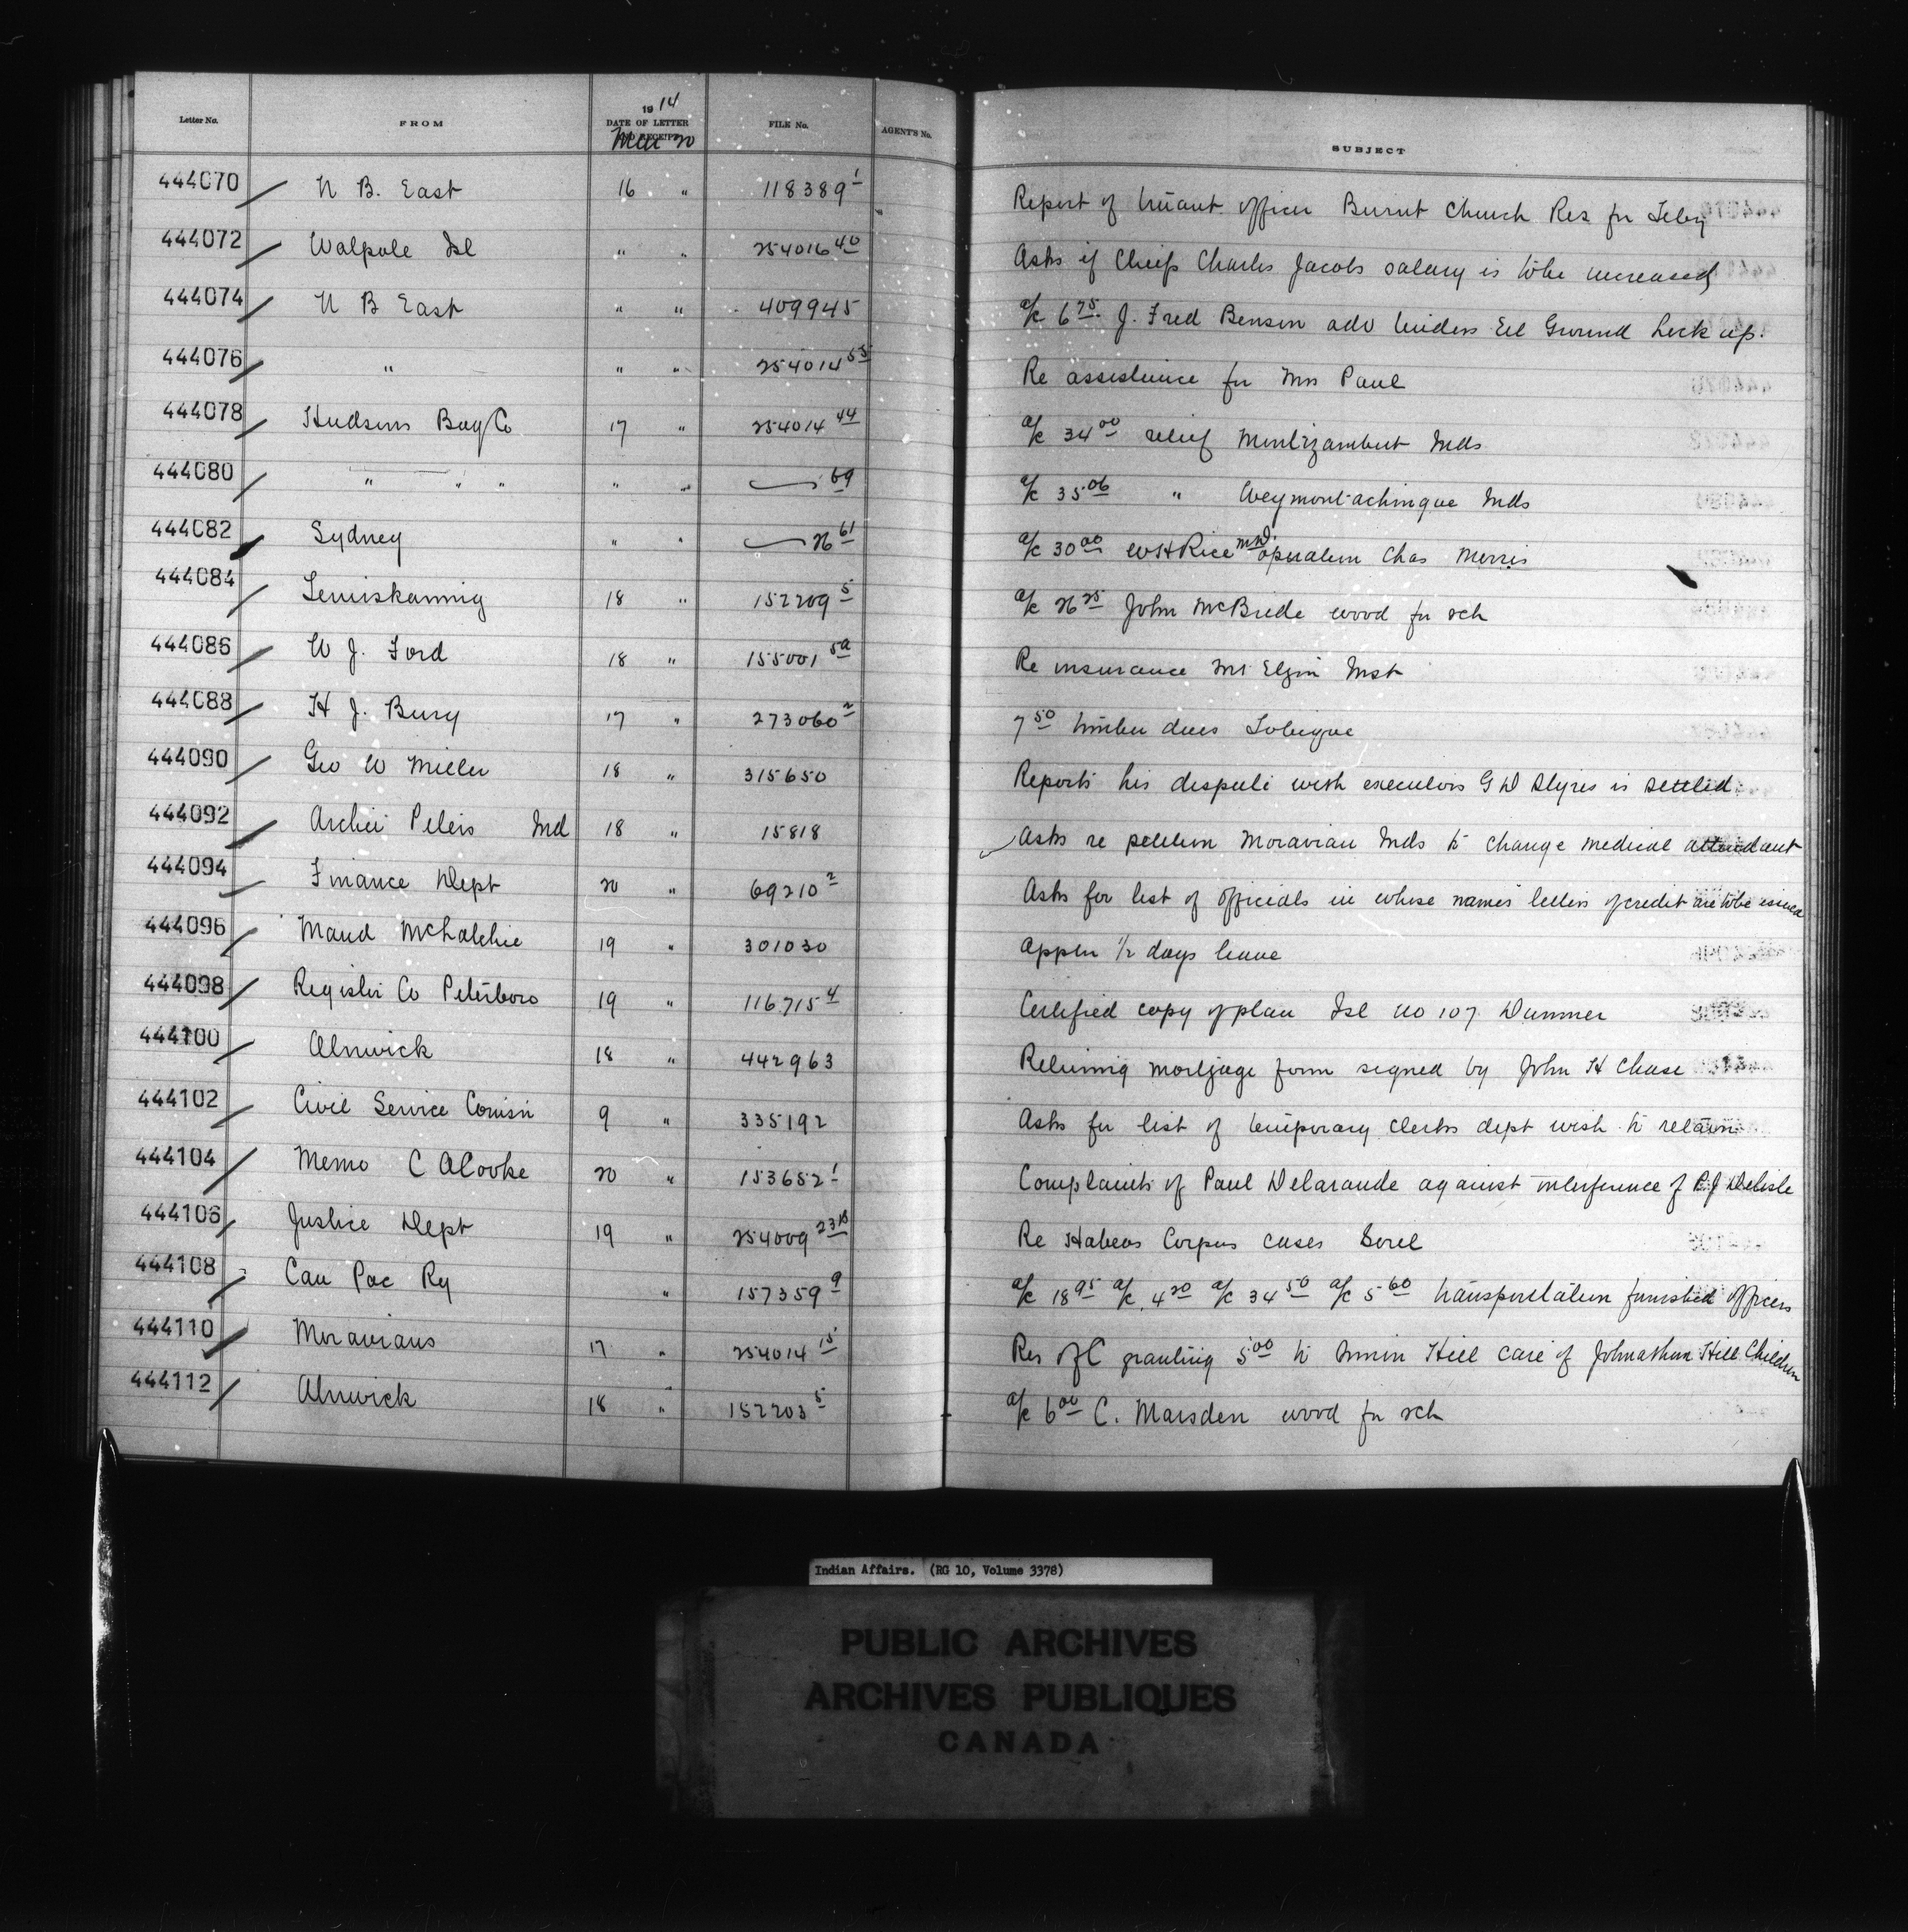 Letter No. FROM 1914 DATE OF LETTER AND RECEIPT Mar 20 FILE No. AGENT'S No. SUBJECT
444070 N B. East 16 " 118389 1 Report of truant officer Burnt Church Res for Feby
444072 Walpole Isl " " 254016 40 Asks if Chiefs Charles Jacobs salary is to be increased
444074 N B East " " 409945 a/c 6 75 J. Fred Benson adv tenders Eel Ground Lock up.
444076 " " " 254014 55 Re assistance for Mrs Paul
444078 Hudsons Bay Co 17 " 254014 44 a/c 34 00 relief Montizambert Inds
444080 " " " " " 69 a/c 35 06 " Weymontachingue Inds
444082 Sydney " " 26 61 a/c 30 00 W H Rice M.D. operation Chas Morris
444084 Temiskaming 18 " 152209 5 a/c 26 25 John McBride wood for sch
444086 W J. Ford 18 " 155001 5a Re insurance Mt Elgin Inst
444088 H J. Bury 17 " 273060 2 7 50 timber dues Tobique
444090 Geo W Miller 18 " 315650 Reports his despute with executors G W Styres is settled
444092 Archie Peters Ind 18 " 15818 Asks re petition Moravian Inds to change medical attendant
444094 Finance Dept 20 " 69210 2 Asks for list of officials in whose names letters of credit are to be issued
444096 Maud 19 " 301030 appln 1/2 days leave
444098 Register Co Peterboro 19 " 116715 4 Certified copy of plan Isl no 107 Dummer
444100 Alnwick 18 " 442963 Returning mortgage form signed by John H Chase
444102 Civil Service Comisn 9 " 335192 Asks for list of temporary clerks dept wish to retain
444104 Memo C A Cooke 20 " 153652 1 Complaints of Paul Delaronde against interference of P. J Delisle
444106 Justice Dept 19 " 254009 23B Re Habeas Corpus cases Sorel
444108 Can Pac Ry " 157359 9 a/c 18 95 a/c 4 20 a/c 34 50 a/c 5 60 transportation furnished officers
444110 Moravians 17 " 254014 15 Res of C granting 5 00 to Hill care of Johnathan Hill Children
444112 Alnwick 18 " 152203 5 a/c 6 00 C. Marsden wood for sch
Indian Affairs. (RG 10, Volume 3378)
PUBLIC ARCHIVES
ARCHIVES PUBLIQUES
CANADA